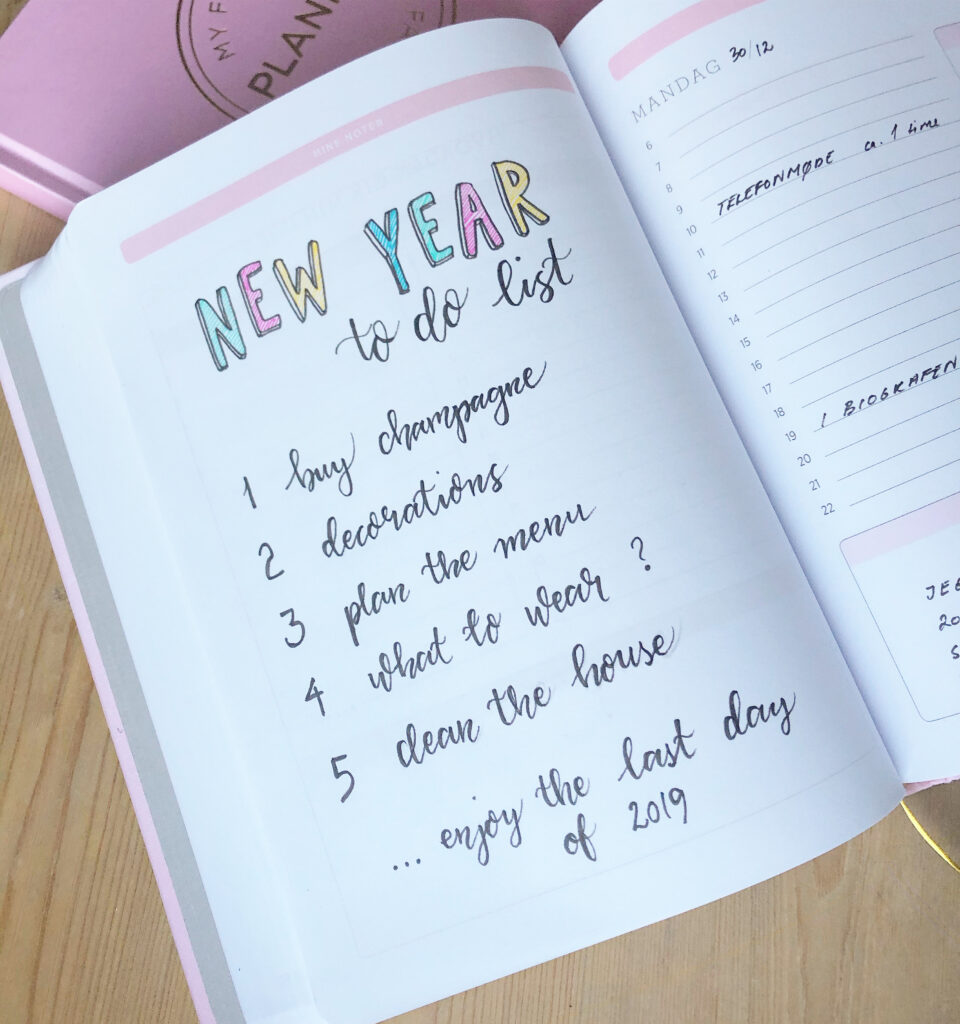 MY F
PLAN
MINE NOTER
NEW YEAR
to do list
1 buy champagne
2 decorations
3 plan the menu
4 what to wear ?
5 clean the house
... enjoy the last day
of 2019
MANDAG 30/12
6
7
8
9 TELEFONMØDE ca. 1 time
10
11
12
13
14
15
16
17
18
19 I BIOGRAFEN
20
21
22
20